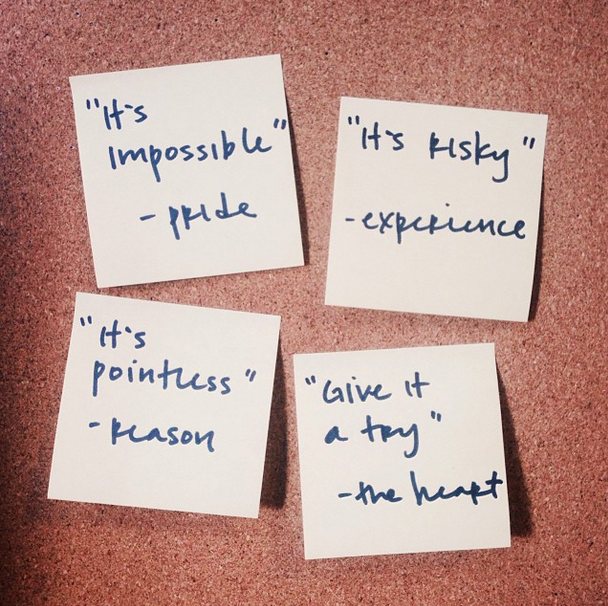 "It's
impossible"
- pride
"It's risky"
- experience
"It's
pointless"
- reason
"Give it
a try"
- the heart